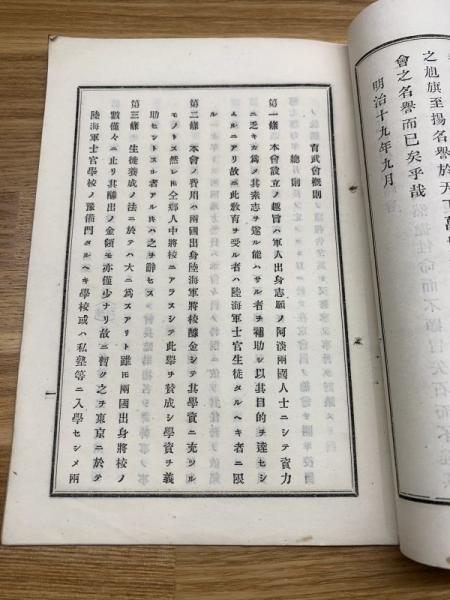 之旭旗至揚名譽於天下萬
會之名譽而已矣乎哉
明治十九年九月
育武會概則
總則
第一條 本會設立ノ趣旨ハ軍人出身志願ノ阿淡兩國人士ニシテ資力
ニ乏キカ爲メ其素志ヲ遂ル能ハサル者ヲ補助シ以其目的ヲ達セシ
ムルニアリ故ニ此敎育ヲ受ル者ハ陸海軍士官生徒タルヘキ者ニ限
ル
第二條 本會ノ費用ハ兩國出身陸海軍將校醵金シテ其學資ニ充ツル
モノトス然レ𪜈仝鄕人中將校ニアラスシテ此擧ヲ贊成シ學資ヲ義
助セントスル者アル𪜈ハ之ヲ辭セス
第三條 生徒養成ノ法ニ於テハ大ニ爲スアリト雖𪜈兩國出身將校ノ
數僅々ニ止リ其醵出ノ金額モ亦僅少ナリ故ニ暫ク之ヲ東京ニ於テ
陸海軍士官學校ノ豫備門タルヘキ學校或ハ私塾等ニ入學セシメ兩
一